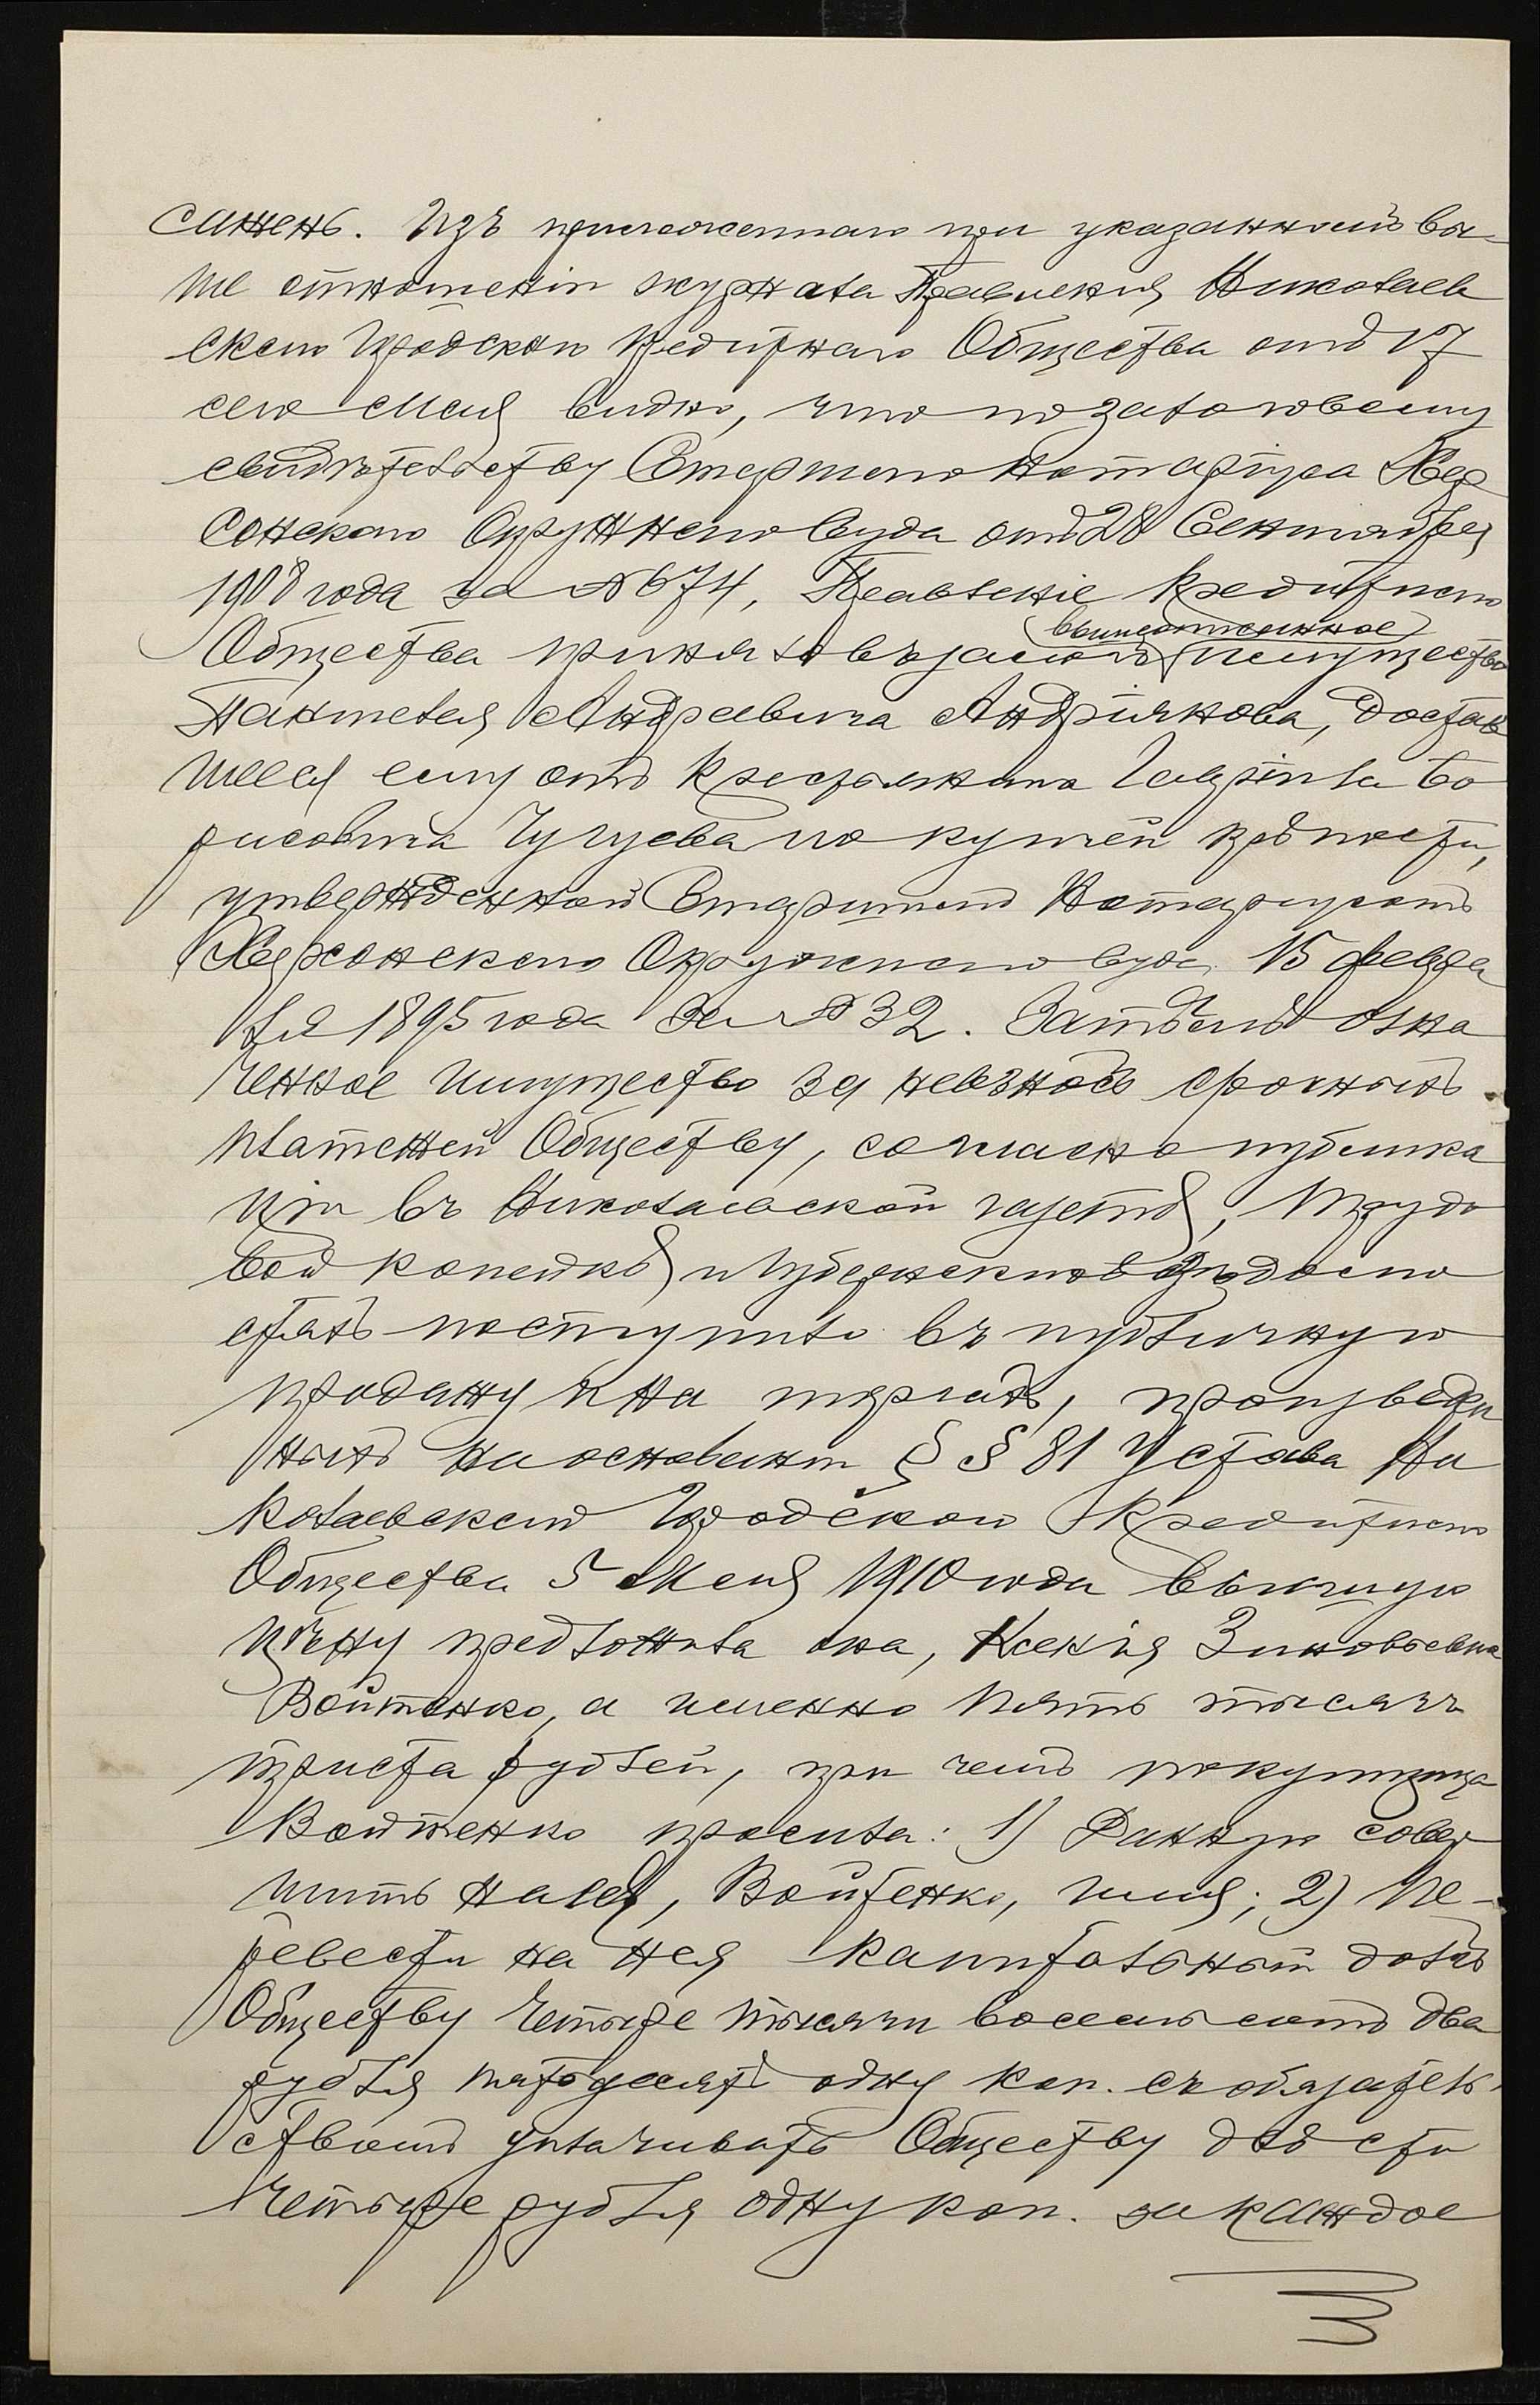 сажень. Изъ приложеннаго при указанномъ вы-
ше отношеніи журнала Правленія Николаев
скаго Городскаго Кредитнаго Общества отъ 17
сего Мая видно, что по залоговому
свидѣтельству Старшаго Нотаріуса Хер
сонскаго Окружнаго Суда отъ 28 Сентября
1908 года за № 674, Правленіе Кредитнаго
Общества приняло въ залогъ (вышеописанное) имущество
Пантелея Андреевича Андріянова, достав
шееся ему отъ крестьянина Гавріила Бо
рисовича Чугуева по купчей крѣпости,
утвержденной Старшимъ Нотаріусомъ
Херсонскаго Окружнаго Суда 15 Февра
ля 1895 года за № 32. Затѣмъ озна
ченное имущество за невзносъ срочныхъ
платежей Обществу, согласно публика
ціи въ Николаевской газетѣ, Трудо
вой копейкѣ и Губернскихъ Вѣдомо
стяхъ поступило въ публичную
продажу и на торгахъ, произведен
ныхъ на основаніи § § 81 Устава Ни
колаевскаго Городскаго Кредитнаго
Общества 5 Мая 1910 года высшую
цѣну предложила она, Ксенія Зиновьевна
Войтенко, а именно пять тысячъ
триста рублей, при чемъ покупщица
Войтенко просила: 1) Данную совер
шить на ея, Войтенко, имя; 2) пе-
ревести на нея капитальный долгъ
Обществу четыре тысячи восемьсотъ два
рубля пятьдесятъ одну коп. съ обязатель
ствомъ уплачивать Обществу двѣсти
четыре рубля одну коп. за каждое